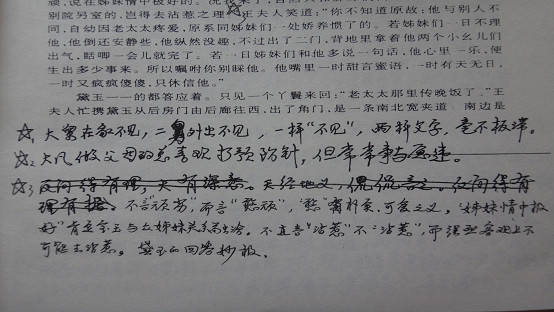 顽，说在姊妹情中极好的。况我来了，自然
别院另室的，岂得去沾惹之理？”王夫人笑道：“你不知道原故：他与别人不
同，自幼因老太太疼爱，原系同姊妹们一处娇养惯了的。若姊妹们一日不理
他，他倒还安静些，他纵然没趣，不过出了二门，背地里拿着他两个小幺儿们
出气，咕唧一会儿就完了。若一日姊妹们和他多说一句话，他心里一乐，便
生出多少事来。所以嘱咐你别睬他。他嘴里一时甜言蜜语，一时有天无日，
一时又疯疯傻傻，只休信他。”
黛玉一一的都答应着。只见一个丫鬟来回：“老太太那里传晚饭了。”王
夫人忙携黛玉从后房门由后廊往西，出了角门，是一条南北宽夹道，南边是
☆1 大舅在家不见，二舅外出不见，一样“不见”，两种文字，毫不板滞。
☆2 大凡做父母的总喜欢打预防针，但常常事与愿违。
☆3 反问得有理，大有深意。天经地义，侃侃言之。反问得有
理有据。不言“顽劣”，而言“憨顽”，“憨”有朴素、可爱之义，“姊妹情中极
好” 不直言“沾惹”不“沾惹”，而强调客观上不
可能去沾惹。黛玉的回答妙极。